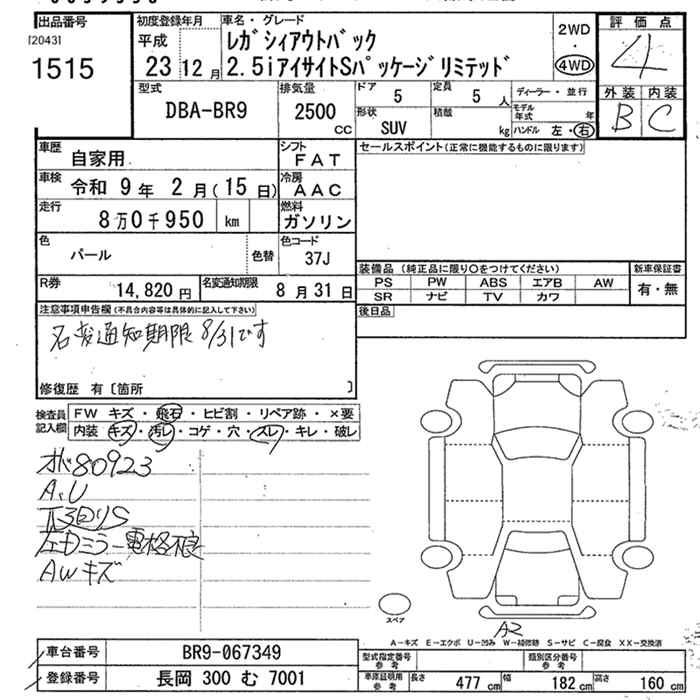 出品番号
[2043]
1515
初度登録年月
平成
23 12 月
車名・グレード
レガシィアウトバック
2.5iアイサイトSパッケージリミテッド
2WD
・
4WD
評価点
4
外装 内装
B C
型式
DBA-BR9
排気量
2500
cc
ドア
5
定員
5 人
形状
SUV
積載
kg
ディーラー・並行
モデル年式 年
ハンドル 左・右
車歴
自家用
シフト
FAT
車検
令和 9 年 2 月(15 日)
冷房
AAC
走行
8 万 0 千 950 km
燃料
ガソリン
色
パール
色替
色コード
37J
R券
14,820 円
名変通知期限
8 月 31 日
セールスポイント(正常に機能するものに限ります)
装備品(純正品に限り○をつけてください)
PS PW ABS エアB AW
SR ナビ TV カワ
新車保証書
有・無
後日品
注意事項申告欄(不具合内容等は具体的に記入して下さい)
名変通知期限8/31です
修復歴 有〔箇所 〕
検査員記入欄
FW キズ・飛石・ヒビ割・リペア跡・×要
内装 キズ・汚レ・コゲ・穴・スレ・キレ・破レ
80923
A,U
下回りS
左Dミラー電格不良
AWキズ
スペア
A2
A-キズ E-エクボ U-凹み W-補修跡 S-サビ C-腐食 XX-交換済
車台番号
BR9-067349
登録番号
長岡 300 む 7001
型式指定番号
参考
類別区分番号
参考
車庫証明用
参考
長さ 477 cm 幅 182 cm 高さ 160 cm